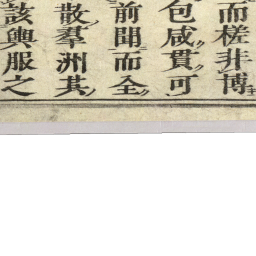 而槎非博
包咸貫可
前聞而全
散羣洲其
該輿服之